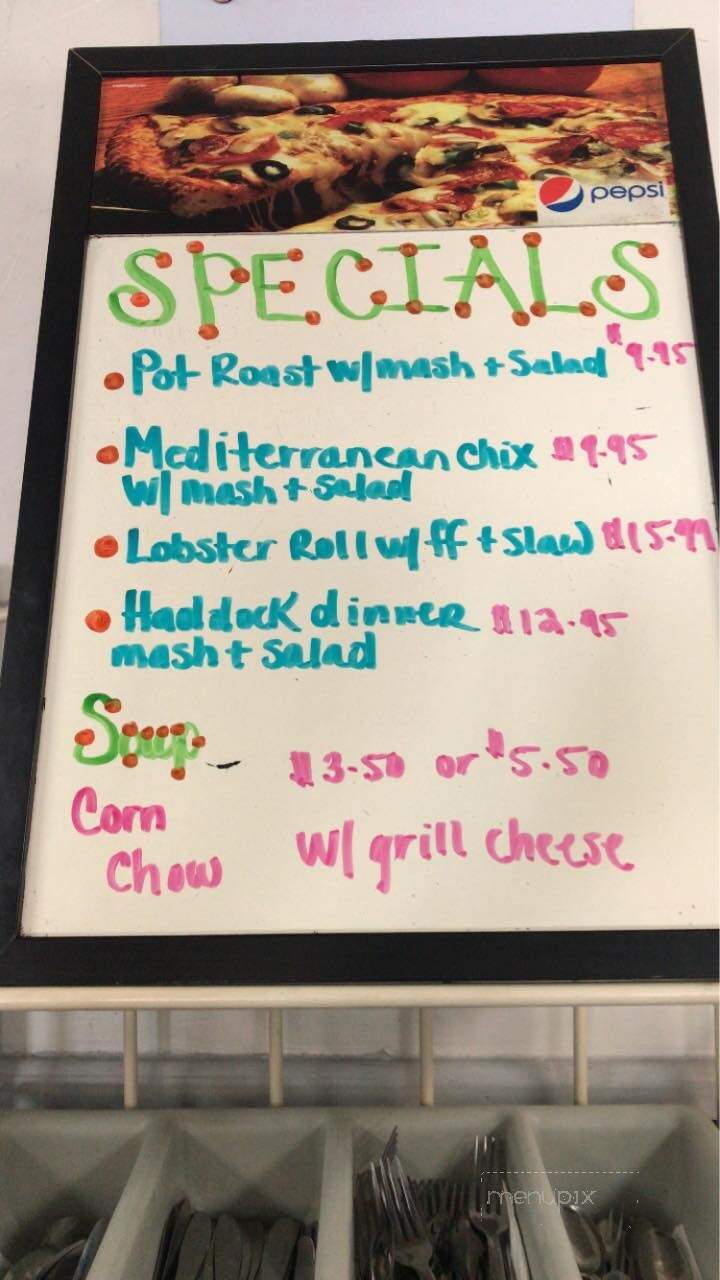 pepsi
SPECIALS
• Pot Roast w/mash + Salad $9.95
• Mediterranean chix $9.95
w/ mash + salad
• Lobster Roll w/ ff + Slaw $15.99
• Haddock dinner $12.95
mash + salad
Soup - $3.50 or $5.50
Corn Chow w/ grill cheese
menupix